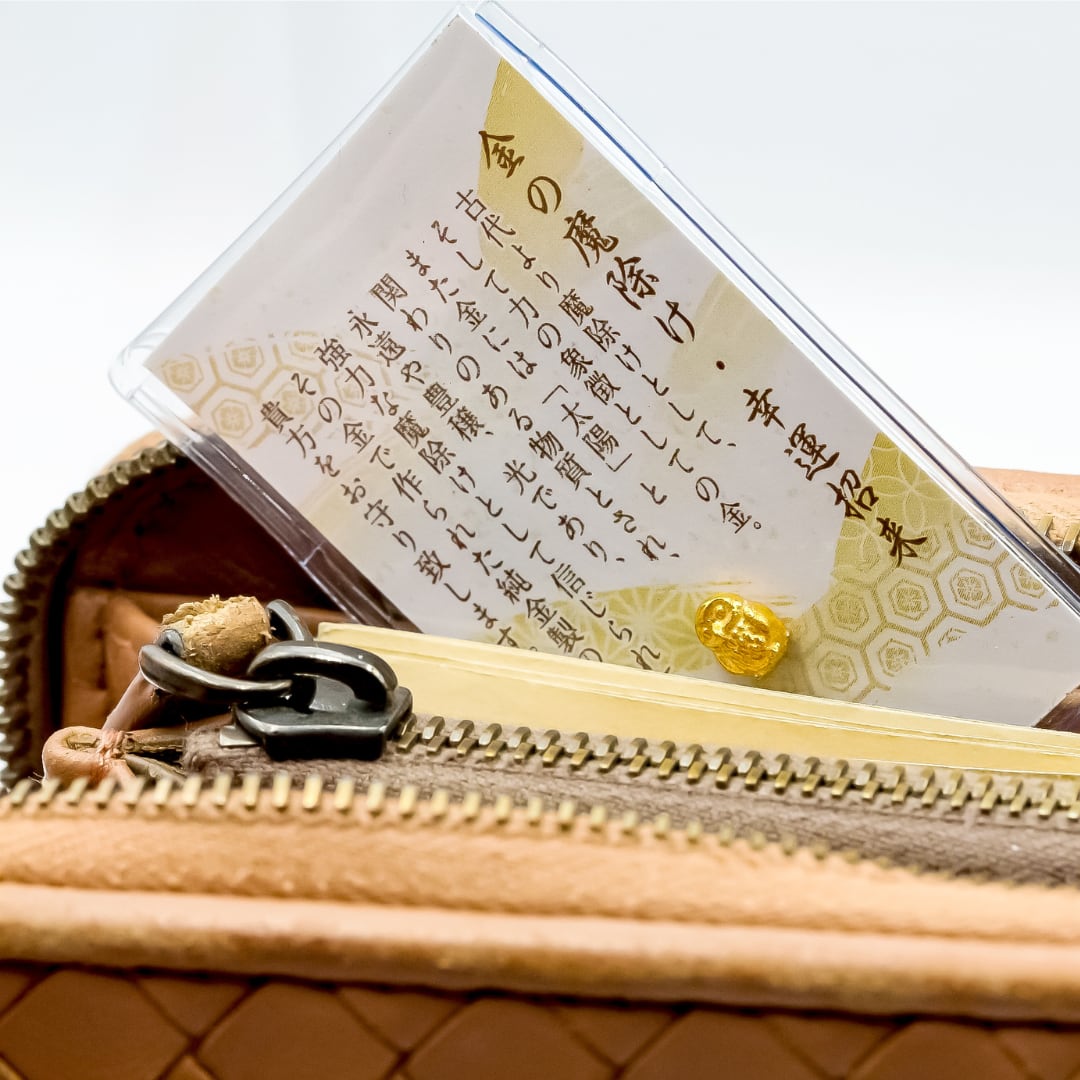 金の魔除け・幸運招来
古代より魔除けとして、
そして力の象徴としての金。
また金には「太陽」と
関わりのある物質とされ、
永遠や豊穣、光であり、
強力な魔除けとして信じられ
その金で作られた純金製の
貴方をお守り致します。